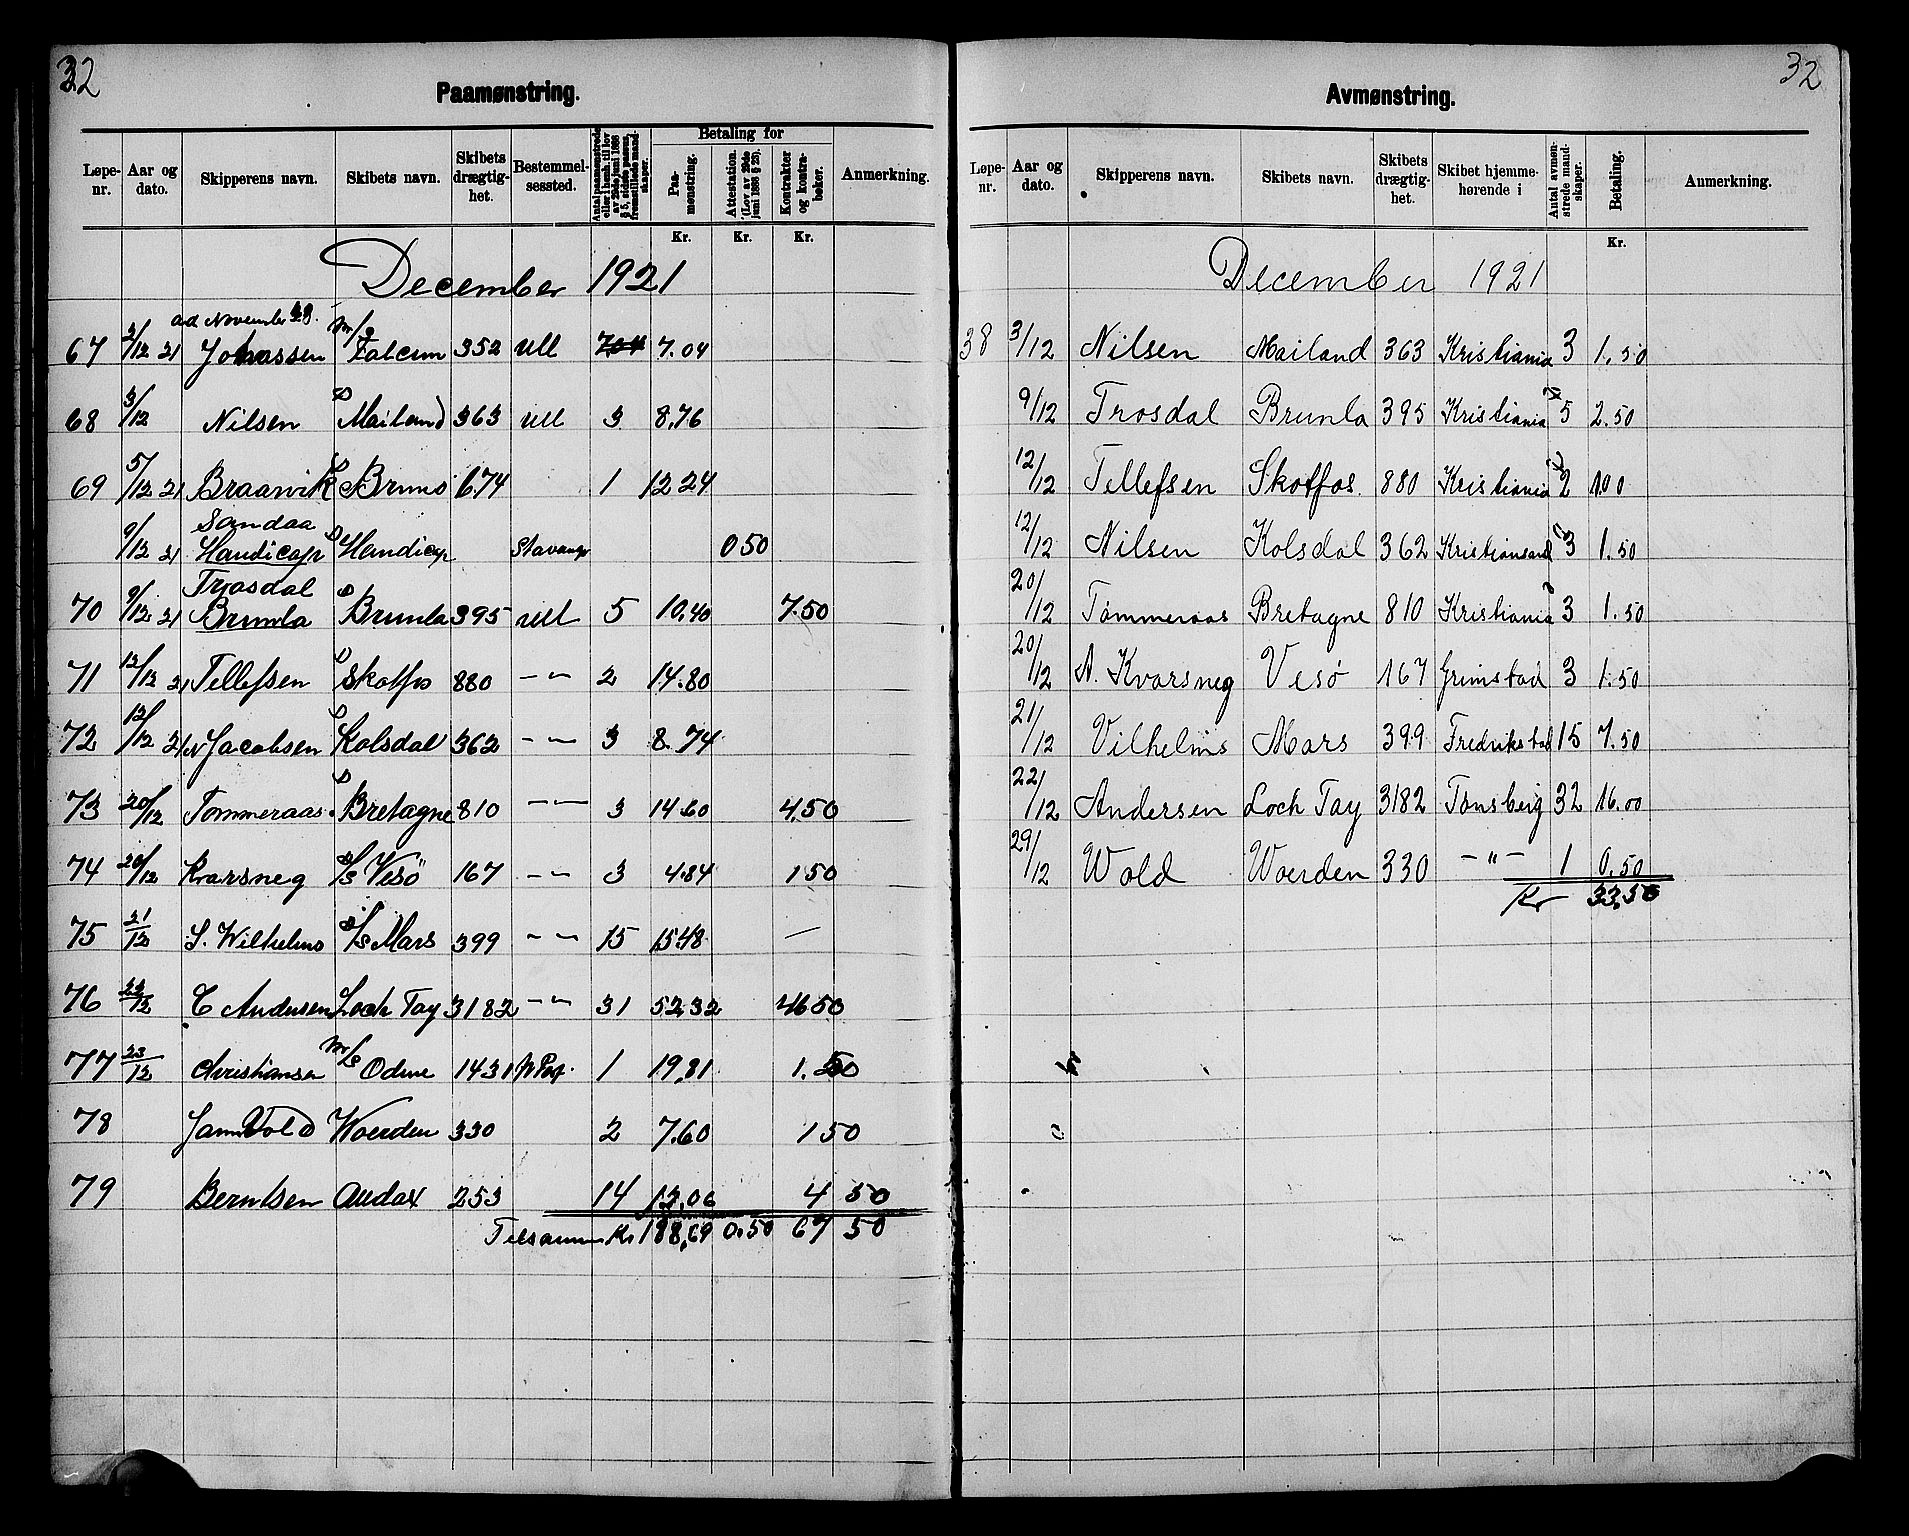 32
Paamønstring.
Løpe-nr. Aar og dato. Skipperens navn. Skibets navn. Skibets drægtig-het. Bestemmel-sessted. Antal paamønstrede eller i henh. til lov av 29de juni 1888 § 5, sidste passus, fremstillede mand-skaper. Betaling for Paa-mønstring. Attestation. (Lov av 29de juni 1888 § 25). Kontrakter og kontra-bøker. Anmerkning.
Kr. Kr. Kr.
December 1921
ad November
67 2/12 21 Johassen M/S Falcun 352 Ull 7.04 7.04
68 3/12 Nilsen D Mailand 363 Ull 3 8.76
69 5/12 21 Braarvik D Bruno 674 1 12 24
Sandaa
9/12 21 Handicap D Handicap Stavanger 0 50
Trosdal
70 9/12 21 Brunla D Brunla 395 Ull 5 10.40 7.50
71 12/12 21 Tellefsen D Skotfos 880 — " — 2 14.80
72 12/12 21 N Jacobsen D Kolsdal 362 — " — 3 8.74
73 20/12 Tømmeraas D Bretagne 810 — " — 3 14.60 4.50
74 20/12 Kvarsneg D/S Vesö 167 — " — 3 4.84 1 50
75 21/12 S. Wilhelms D/S Mars 399 — " — 15 15 48 —
76 22/12 C Andersen Loch Tay 3182 — " — 31 52.32 46 50
77 23/12 Christiansen M/S Odine 1431 1 19.81 1.50
78 Vold Woerden 330 2 7.60 1 50
79 Berntsen Audax 253 14 12.06 4 50
Tilsammen Kr 188,69 0.50 67 50
32
Avmønstring.
Løpe-nr. Aar og dato. Skipperens navn. Skibets navn. Skibets drægtig-het. Skibet hjemme-hørende i Antal avmøn-strede mand-skaper. Betaling. Anmerkning.
Kr.
December 1921
38 3/12 Nilsen Mailand 363 Kristiania 3 1.50
9/12 Trosdal Brunla 395 Kristiania 5 2.50
12/12 Tellefsen Skotfos 880 Kristiania 2 1.00
12/12 Nilsen Kolsdal 362 Kristiansand 3 1.50
20/12 Tømmeraas Bretagne 810 Kristiania 3 1.50
20/12 A. Kvarsneg Vesø 167 Grimstad 3 1.50
21/12 Vilhelms Mars 399 Fredrikstad 15 7.50
22/12 Andersen Loch Tay 3182 Tønsberg 32 16.00
29/12 Wold Woerden 330 — " — 1 0.50
Kr 33.50